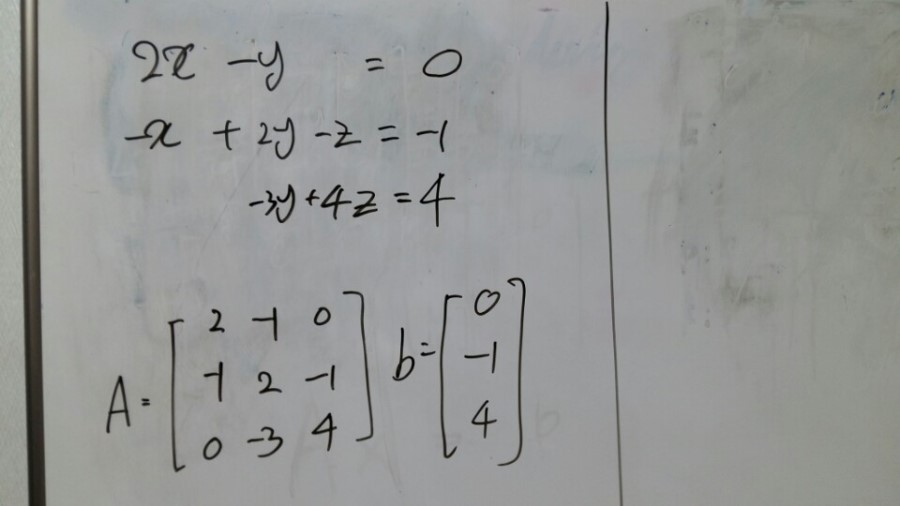 2x -y = 0
-x + 2y -z = -1
-3y+4z = 4
A= [2 -1 0
-1 2 -1
0 -3 4] b= [0
-1
4]